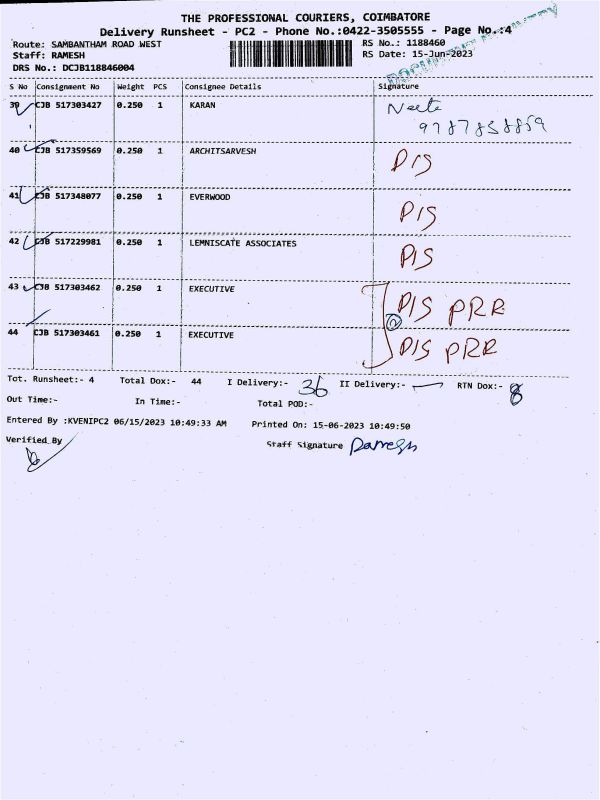 THE PROFESSIONAL COURIERS, COIMBATORE
Delivery Runsheet - PC2 - Phone No.:0422-3505555 - Page No.:4
Route: SAMBANTHAM ROAD WEST RS No.: 1188460
Staff: RAMESH RS Date: 15-Jun-2023
DRS No.: DCJB118846004
S No Consignment No Weight PCS Consignee Details Signature
39 CJB 517303427 0.250 1 KARAN Neete
9787858859
40 CJB 517359569 0.250 1 ARCHITSARVESH DIS
41 CJB 517348077 0.250 1 EVERWOOD DIS
42 CJB 517229981 0.250 1 LEMNISCATE ASSOCIATES DIS
43 CJB 517303462 0.250 1 EXECUTIVE DIS PRR
2
44 CJB 517303461 0.250 1 EXECUTIVE DIS PRR
Tot. Runsheet:- 4 Total Dox:- 44 I Delivery:- 36 II Delivery:- — RTN Dox:- 8
Out Time:- In Time:- Total POD:-
Entered By :KVENIPC2 06/15/2023 10:49:33 AM Printed On: 15-06-2023 10:49:50
Verified By Staff Signature Ramesh